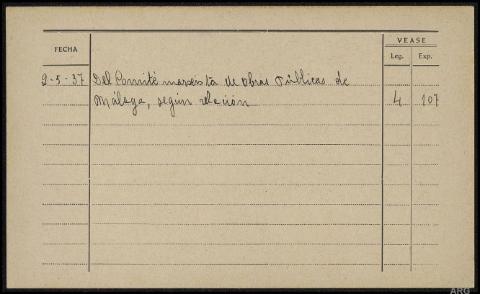 FECHA
VEASE
Leg. Exp.
9-5-37 Del Comité marxista de obras Públicas de
Málaga, según relación 4 107
ARG